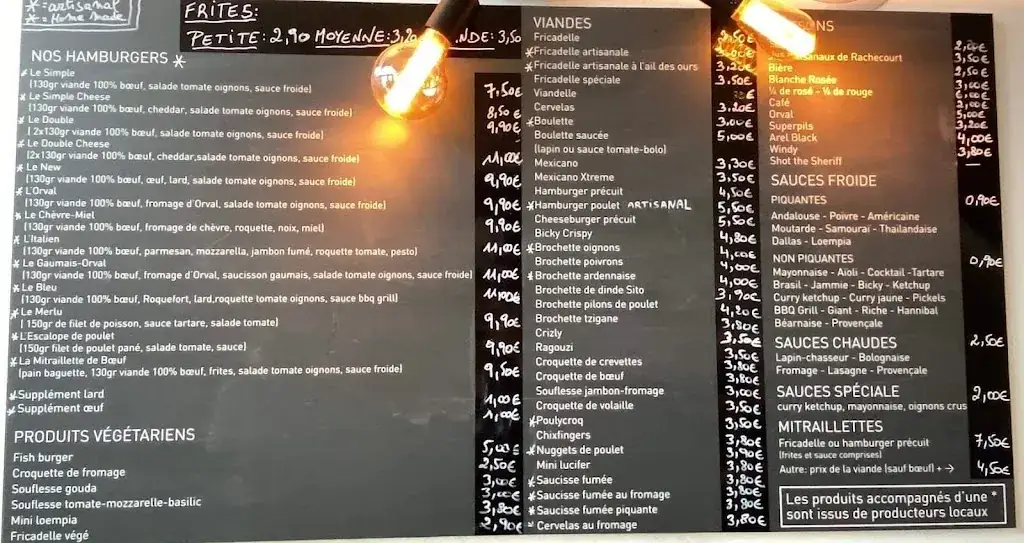 *=artisanal
*=Home made
FRITES:
PETITE: 2,90 MOYENNE: 3,20 NDE: 3,50
NOS HAMBURGERS *
* Le Simple
(130gr viande 100% bœuf, salade tomate oignons, sauce froide) 7,50€
* Le Simple Cheese
(130gr viande 100% bœuf, cheddar, salade tomate oignons, sauce froide) 8,50€
* Le Double
( 2x130gr viande 100% bœuf, salade tomate oignons, sauce froide) 9,90€
* Le Double Cheese
(2x130gr viande 100% bœuf, cheddar,salade tomate oignons, sauce froide) 11,00€
* Le New
(130gr viande 100% bœuf, œuf, lard, salade tomate oignons, sauce froide) 9,90€
* L'Orval
(130gr viande 100% bœuf, fromage d'Orval, salade tomate oignons, sauce froide) 9,90€
* Le Chèvre-Miel
(130gr viande 100% bœuf, fromage de chèvre, roquette, noix, miel) 9,90€
* L'Italien
(130gr viande 100% bœuf, parmesan, mozzarella, jambon fumé, roquette tomate, pesto) 11,00€
* Le Gaumais-Orval
(130gr viande 100% bœuf, fromage d'Orval, saucisson gaumais, salade tomate oignons, sauce froide) 11,00€
* Le Bleu
(130gr viande 100% bœuf, Roquefort, lard,roquette tomate oignons, sauce bbq grill) 11,00€
* Le Merlu
( 150gr de filet de poisson, sauce tartare, salade tomate) 9,90€
* L'Escalope de poulet
(150gr filet de poulet pané, salade tomate, sauce) 9,90€
* La Mitraillette de Bœuf
(pain baguette, 130gr viande 100% bœuf, frites, salade tomate oignons, sauce froide) 9,50€
* Supplément lard 1,00€
* Supplément œuf 1,00€
PRODUITS VÉGÉTARIENS
Fish burger 5,00€
Croquette de fromage 2,50€
Souflesse gouda 3,00€
Souflesse tomate-mozzarelle-basilic 3,00€
Mini loempia 3,80€
Fricadelle végé 2,90€
VIANDES
Fricadelle 2,50€
* Fricadelle artisanale
* Fricadelle artisanale à l'ail des ours 3,20€
Fricadelle spéciale 3,50€
Viandelle
Cervelas 3,20€
* Boulette 3,00€
Boulette saucée 5,00€
(lapin ou sauce tomate-bolo)
Mexicano 3,30€
Mexicano Xtreme 3,50€
Hamburger précuit 4,50€
* Hamburger poulet ARTISANAL 5,50€
Cheeseburger précuit 5,50€
Bicky Crispy 4,80€
* Brochette oignons 4,00€
Brochette poivrons 4,00€
* Brochette ardennaise 4,00€
Brochette de dinde Sito 3,90€
Brochette pilons de poulet 4,20€
Brochette tzigane 3,80€
Crizly 3,50€
Ragouzi 3,50€
Croquette de crevettes 3,80€
Croquette de bœuf 3,80€
Souflesse jambon-fromage 3,00€
Croquette de volaille 3,50€
* Poulycroq 3,50€
Chixfingers 3,80€
* Nuggets de poulet 3,90€
Mini lucifer 3,80€
* Saucisse fumée 3,80€
* Saucisse fumée au fromage 3,80€
* Saucisse fumée piquante 3,80€
* Cervelas au fromage 3,80€
artisanaux de Rachecourt 3,50€
Bière 2,50€
Blanche Rosée 3,00€
¼ de rosé - ¼ de rouge 6,00€
Café 2,00€
Orval 5,00€
Superpils 3,20€
Arel Black 4,00€
Windy 3,80€
Shot the Sheriff —
SAUCES FROIDE
PIQUANTES 0,90€
Andalouse - Poivre - Américaine
Moutarde - Samouraï - Thaïlandaise
Dallas - Loempia
NON PIQUANTES 0,90€
Mayonnaise - Aïoli - Cocktail -Tartare
Brasil - Jammie - Bicky - Ketchup
Curry ketchup - Curry jaune - Pickels
BBQ Grill - Giant - Riche - Hannibal
Béarnaise - Provençale
SAUCES CHAUDES 2,50€
Lapin-chasseur - Bolognaise
Fromage - Lasagne - Provençale
SAUCES SPÉCIALE 2,00€
curry ketchup, mayonnaise, oignons crus
MITRAILLETTES
Fricadelle ou hamburger précuit 7,50€
(frites et sauce comprises)
Autre: prix de la viande (sauf bœuf) + → 4,50€
Les produits accompagnés d'une *
sont issus de producteurs locaux